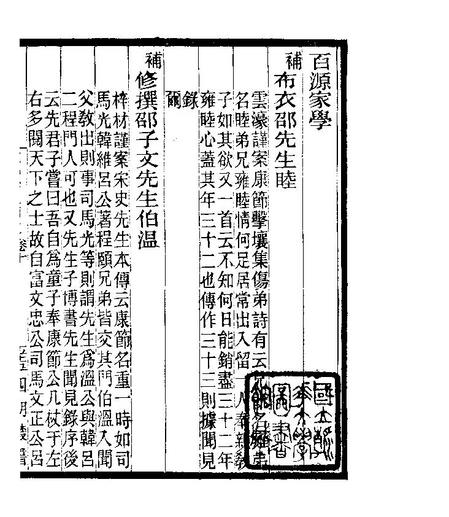 百源家學
補布衣邵先生睦
雲濠謹案康節擊壤集傷弟詩有云兄既名雍弟
名睦弟兄雍睦情何足居常出入留一人奉親教
子如其欲又一首云不知何日能銷盡三十二年
雍睦心蓋其年三十二也傳作三十三則據聞見
錄爾
補修撰邵子文先生伯溫
梓材謹案宋史先生本傳云康節名重一時如司
馬光韓維呂公著程頤兄弟皆交其門伯溫入聞
父教出則事司馬光等則謂先生爲溫公與韓呂
二程門人可也又先生子博書先生聞見錄序後
云先君子嘗曰吾自爲童子奉康節公几杖于左
右多閱天下之士故自富文忠公司馬文正公呂
四明叢書